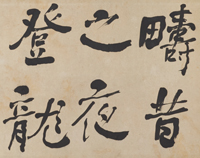 疇昔
之夜
登龍